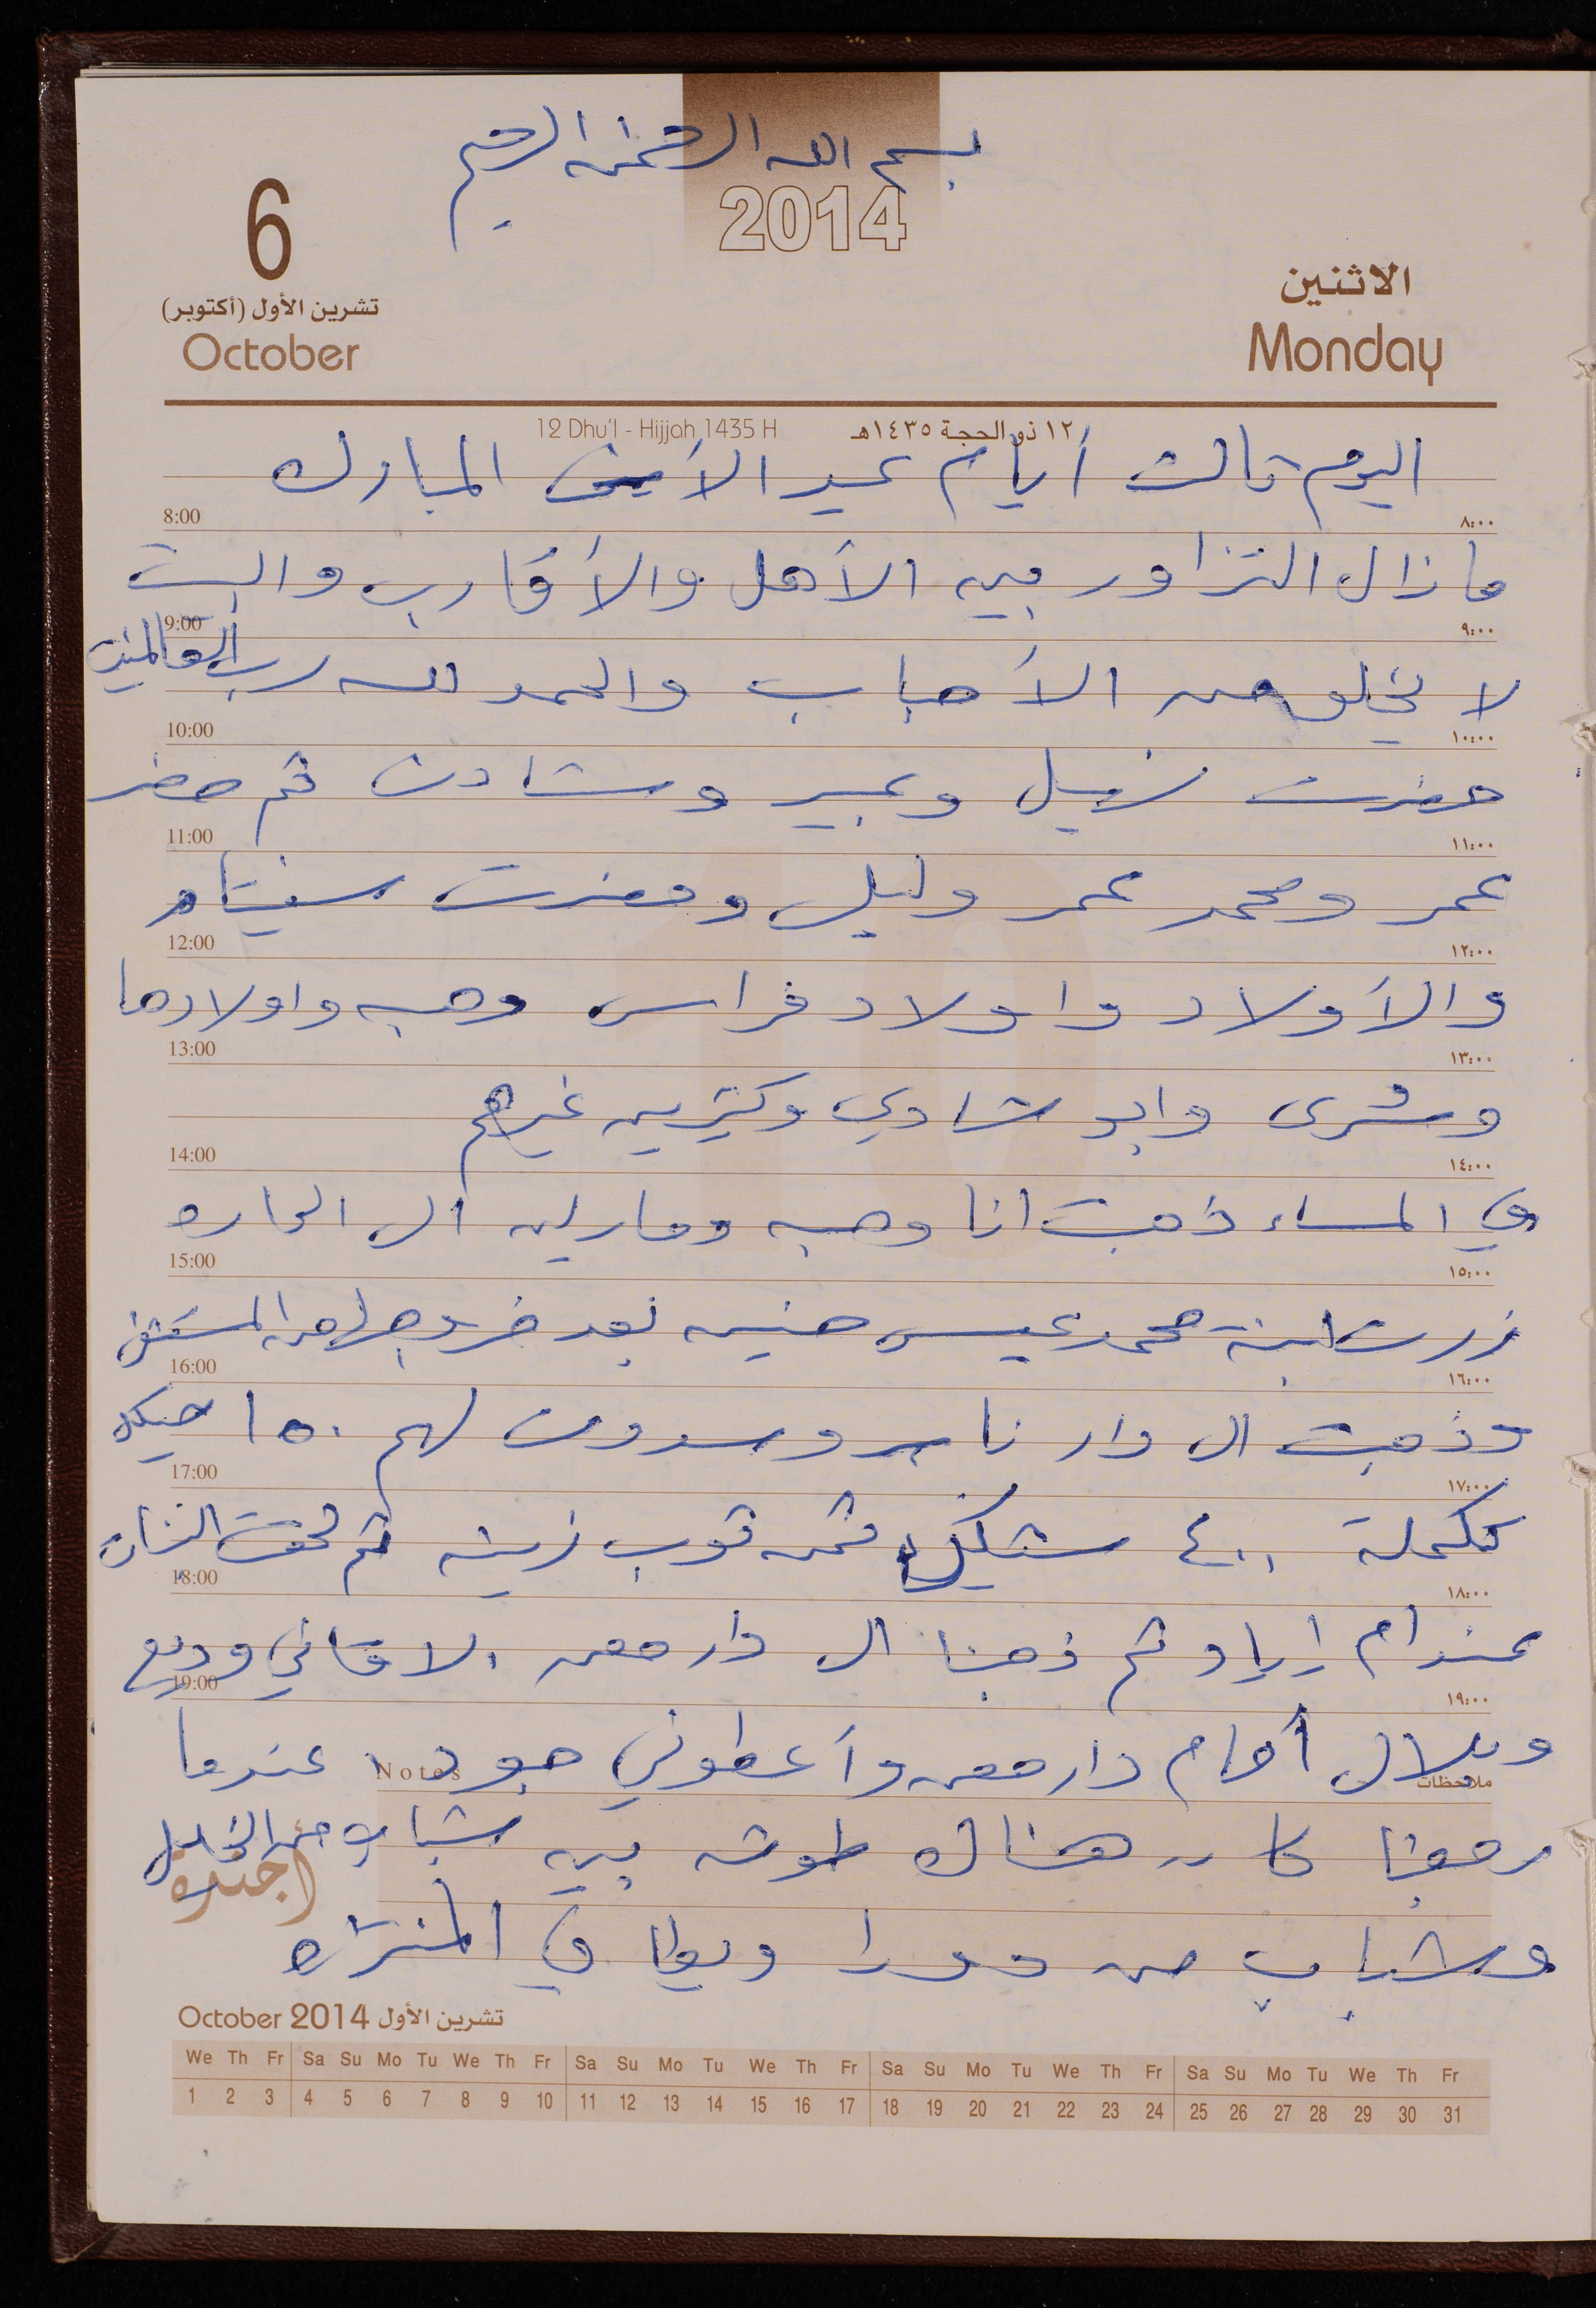 بسم الله الرحمن الرحيم
2014
6
تشرين الأول (أكتوبر)
October
الاثنين
Monday
12 Dhu'l - Hijjah 1435 H ١٢ ذو الحجة ١٤٣٥هـ
اليوم ثالث أيام عيد المبارك
8:00 ٨:٠٠
ما زال التزاور بين الأهل والأقارب والبيت
9:00 ٩:٠٠
لا يخلو من الأحباب والحمد لله رب العالمين
10:00 ١٠:٠٠
حضرت وعبير وشادن ثم حضر
11:00 ١١:٠٠
عمر ومحمد عمر وليلى وحضرت
12:00 ١٢:٠٠
والأولاد واولاد فراس وهبه واولادها
13:00 ١٣:٠٠
وبشرى وابو شادي وكثيرين غيرهم
14:00 ١٤:٠٠
في المساء ذهبت انا وهبه ومارلين الى الحاره
15:00 ١٥:٠٠
زرت ابنة محمد عيسى حنين بعد خروجها من المستشفى
16:00 ١٦:٠٠
وذهبت الى دار وسددت لهم ١٥٠ شيكل
17:00 ١٧:٠٠
تكملة ٤٠٠ شيكل ثمن ثوب زينه ثم لحقت
18:00 ١٨:٠٠
عند ام إياد ثم ذهبنا الى دار معن
19:00 ١٩:٠٠
وبلال أمام دار معن وأعطوني عندما
Notes ملاحظات
رجعنا كان هناك طوشه بين شباب من الخليل
أجندة
وشباب من دورا ويطا في المنتزه
October 2014 تشرين الأول
We Th Fr Sa Su Mo Tu We Th Fr Sa Su Mo Tu We Th Fr Sa Su Mo Tu We Th Fr Sa Su Mo Tu We Th Fr
1 2 3 4 5 6 7 8 9 10 11 12 13 14 15 16 17 18 19 20 21 22 23 24 25 26 27 28 29 30 31